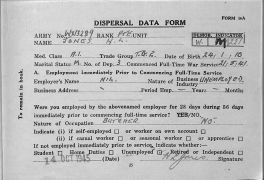 FORM 1A
DISPERSAL DATA FORM
ARMY No. WX13289 RANK Pte UNIT DISPER. INDICATOR
NAME JONES H.L.
Med. Class A.1. Trade Group Date of Birth 24.1.10
Marital Status M. No. of Dep. 3 Commenced Full-Time War Service 21.5.41
A. Employment Immediately Prior to Commencing Full-Time Service
Name of Employer NIL Nature of Business Industry UNEMPLOYED
Business Address Period Employed
Were you employed by the abovenamed employer for 28 days during 56 days
immediately prior to commencing full-time service? YES/NO.
Nature of Occupation BUTCHER NO.
Indicate (i) if self-employed or worker on own account
(ii) if casual worker or seasonal worker or apprentice
If not employed immediately prior to service, indicate whether:—
Student Home Duties Unemployed Retired or Independent
14 OCT 1945 (Date) (Signature) H L Jones
To remain in book.